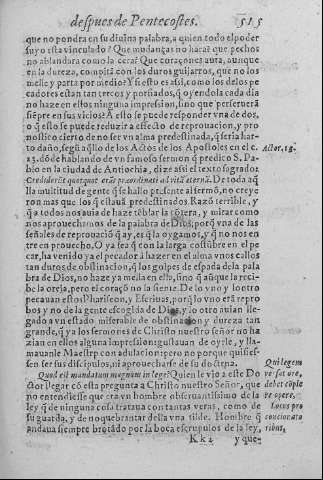 despues de Pentecostes. 515
que no pondra en su diuina palabra, a quien todo el poder
suyo esta vinculado? Que mudanças no hara? que pechos
no ablandara como la cera? Que coraçones aura, aunque
en la dureza, compitã con los duros guijarros, que no los
melle y parta por medio? Y si esto es assi, como los delos pe
cadores estan tan tercos y porfiados, q̃ oyendola cada dia
no haze en ellos ninguna impression, sino que perseuerã
siẽpre en sus vicios? A esto se puede responder vna de dos,
o q̃ esto se puede reduzir a efecto de reprouacion, y pro
nostico cierto de no ser vn alma predestinada, q̃ seria har-
to daño, segũ aq̃llo de los Actos de los Apostoles en el c.
13. dõde hablando de vn famoso sermon q̃ predico S. Pa-
blo en la ciudad de Antiochia, dize assi el texto sagrado:
Crediderũt quotquot erãt præordinati ad vitã æternã. De toda aq̃
lla multitud de gente q̃ se hallo presente al sermõ, no creye
ron mas que los q̃ estauã predestinados. Razõ terrible, y
q̃ a todos nos auia de hazer tẽblar la cõtera, y mirar como
nos aprouechamos de la palabra de Dios, porq̃ vna de las
señales de reprouaciõ q̃ ay, es q̃ la oygamos, y q̃ no nos en
tre en prouecho. O ya sea q̃ con la larga costũbre en el pe
car, ha venido ya el pecador a hazer en el alma vnos callos
tan duros de obstinacion, q̃ las golpes de espada dela pala
bra de Dios, no haze ya mella en ello, ni aũque la reci-
be la oreja, pero el coraçõ no la siente. De lo vno y lo otro
pecauan estos Phariseos, y Escriuas, porq̃ lo vno erã repro
bos y no de la gente escogida de Dios, y lo otro auian lle-
gado a vn estado miserable de obstinacion y dureza tan
grande, q̃ ya los sermones de Christo nuestro señor no ha
zian en ellos alguna impresion: gustauan de oyrle, y lla-
mauanle Maestro con adulacion: pero no porque quisies-
sen ser sus discipulos, ni aprouecharse de su doctrina.
Quod est mandatum magnum in lege? Quien le vio a este Do
ctor llegar cõ esta pregunta a Christo nuestro Señor, que
no entendiesse que era vn hombre obseruantissimo de la
ley q̃ de ninguna cosa trataua con tantas veras, como de
su guarda, y de no quebrantar della vna tilde. Hombre q̃
andaua siempre brotãdo por la boca escrupulos de la ley,
Kk 2 y que
Actor. 13.
Qui legem
Locus pro
concionato
ribus.